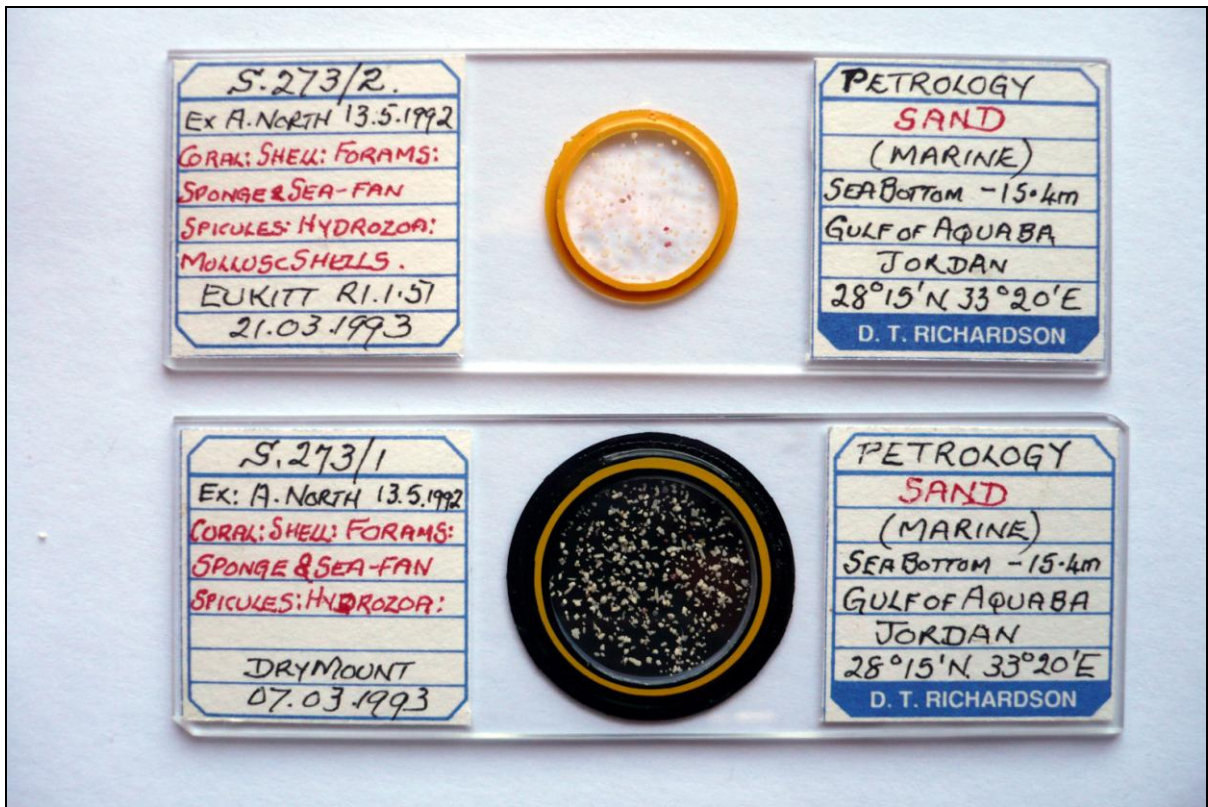 S.273/2.
Ex A. NORTH 13.5.1992
CORAL: SHELL: FORAMS:
SPONGE & SEA-FAN
SPICULES: HYDROZOA:
MOLLUSC SHELLS.
EUKITT RI.1.51
21.03.1993
PETROLOGY
SAND
(MARINE)
SEA BOTTOM - 15.4m
GULF OF AQUABA
JORDAN
28°15'N 33°20'E
D. T. RICHARDSON
S.273/1
Ex: A. NORTH 13.5.1992
CORAL: SHELL: FORAMS:
SPONGE & SEA-FAN
SPICULES: HYDROZOA:
DRY MOUNT
07.03.1993
PETROLOGY
SAND
(MARINE)
SEA BOTTOM - 15.4m
GULF OF AQUABA
JORDAN
28°15'N. 33°20'E
D. T. RICHARDSON